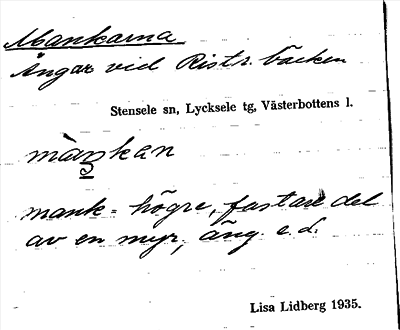 Mankarna
Ängar vid Ristr. bäcken
Stensele sn, Lycksele tg, Västerbottens l.
màŋkan
mank = högre, fastare del
av en myr, äng e.d.
Lisa Lidberg 1935.